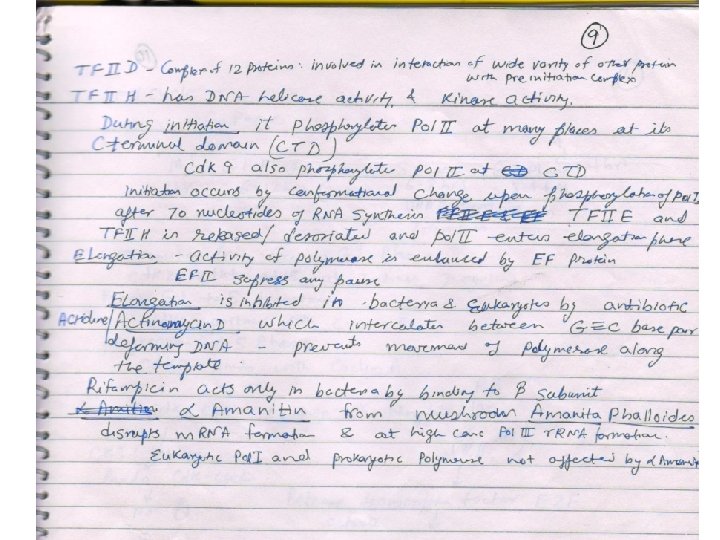 9
TFIID - Complex of 12 proteins: involved in interaction of wide varity of other protein
with preinitiation complex
TFIIH - has DNA helicase activity & Kinase activity.
During initiation it phosphorylates Pol II at many places at its
C-terminal domain (CTD)
Cdk 9 also phosphorylate Pol II at CTD
initiation occurs by conformational change upon phosphorylation of Pol II
after 70 nucleotides of RNA synthesis TFIIE and
TFIIH is released/ dissociated and pol II enters elongation phase
Elongation - activity of polymerase is enhanced by EF protein
EFII supress any pause
Elongation is inhibited in bacteria & Eukaryotes by antibiotic
Acridine/ Actinomycin D which intercalates between G≡C base pair
deforming DNA - prevents movement of Polymerase along
the template
Rifampicin acts only in bacteria by binding to β subunit
α Amanitin from mushroom Amanita Phalloides
disrupts mRNA formation & at high conc Pol III TRNA formation.
Eukaryotic Pol I and prokaryotic Polymerase not affected by α Amanitin